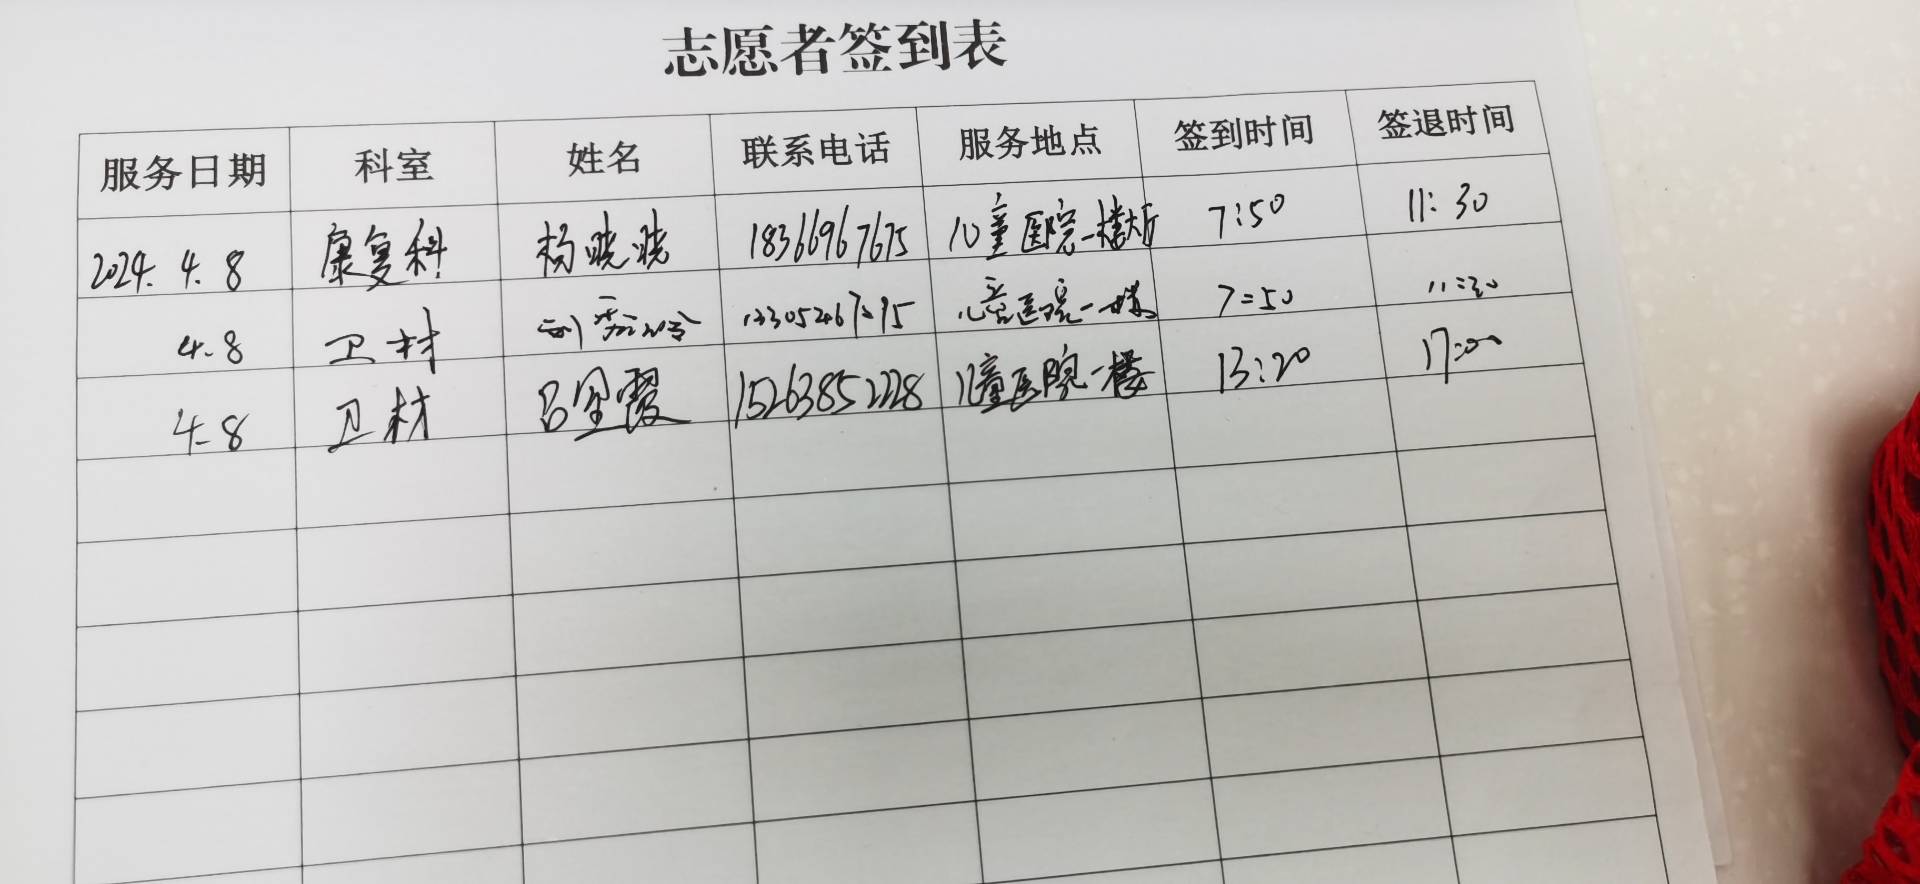 志愿者签到表
服务日期 科室 姓名 联系电话 服务地点 签到时间 签退时间
2024.4.8 康复科 杨晓晓 18366967675 儿童医院一楼大厅 7:50 11:30
4.8 卫材 儿童医院一楼 7:50 11:30
4.8 卫材 15263852228 儿童医院一楼 13:20 17:00